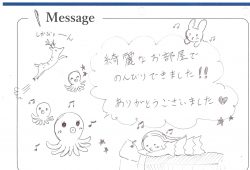 Message
しかぶぃーん
綺麗なお部屋で
のんびりできました!!
ありがとうございました